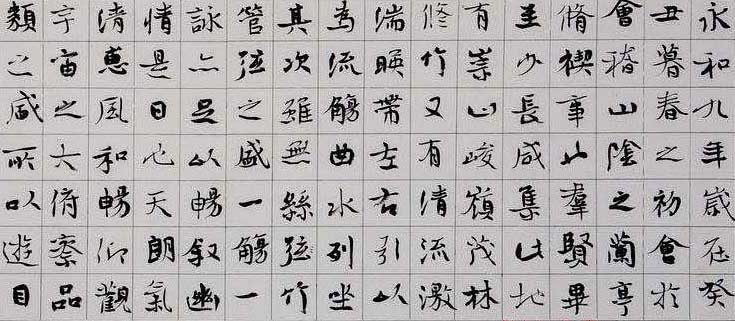 永和九年歲在癸
丑暮春之初會於
會稽山陰之蘭亭
脩禊事也羣賢畢
至少長咸集此地
有崇山峻嶺茂林
修竹又有清流激
湍暎帶左右引以
為流觴曲水列坐
其次雖無絲弦竹
管弦之盛一觴一
詠亦足以暢叙幽
情是日也天朗氣
清惠風和暢仰觀
宇宙之大俯察品
類之盛所以遊目